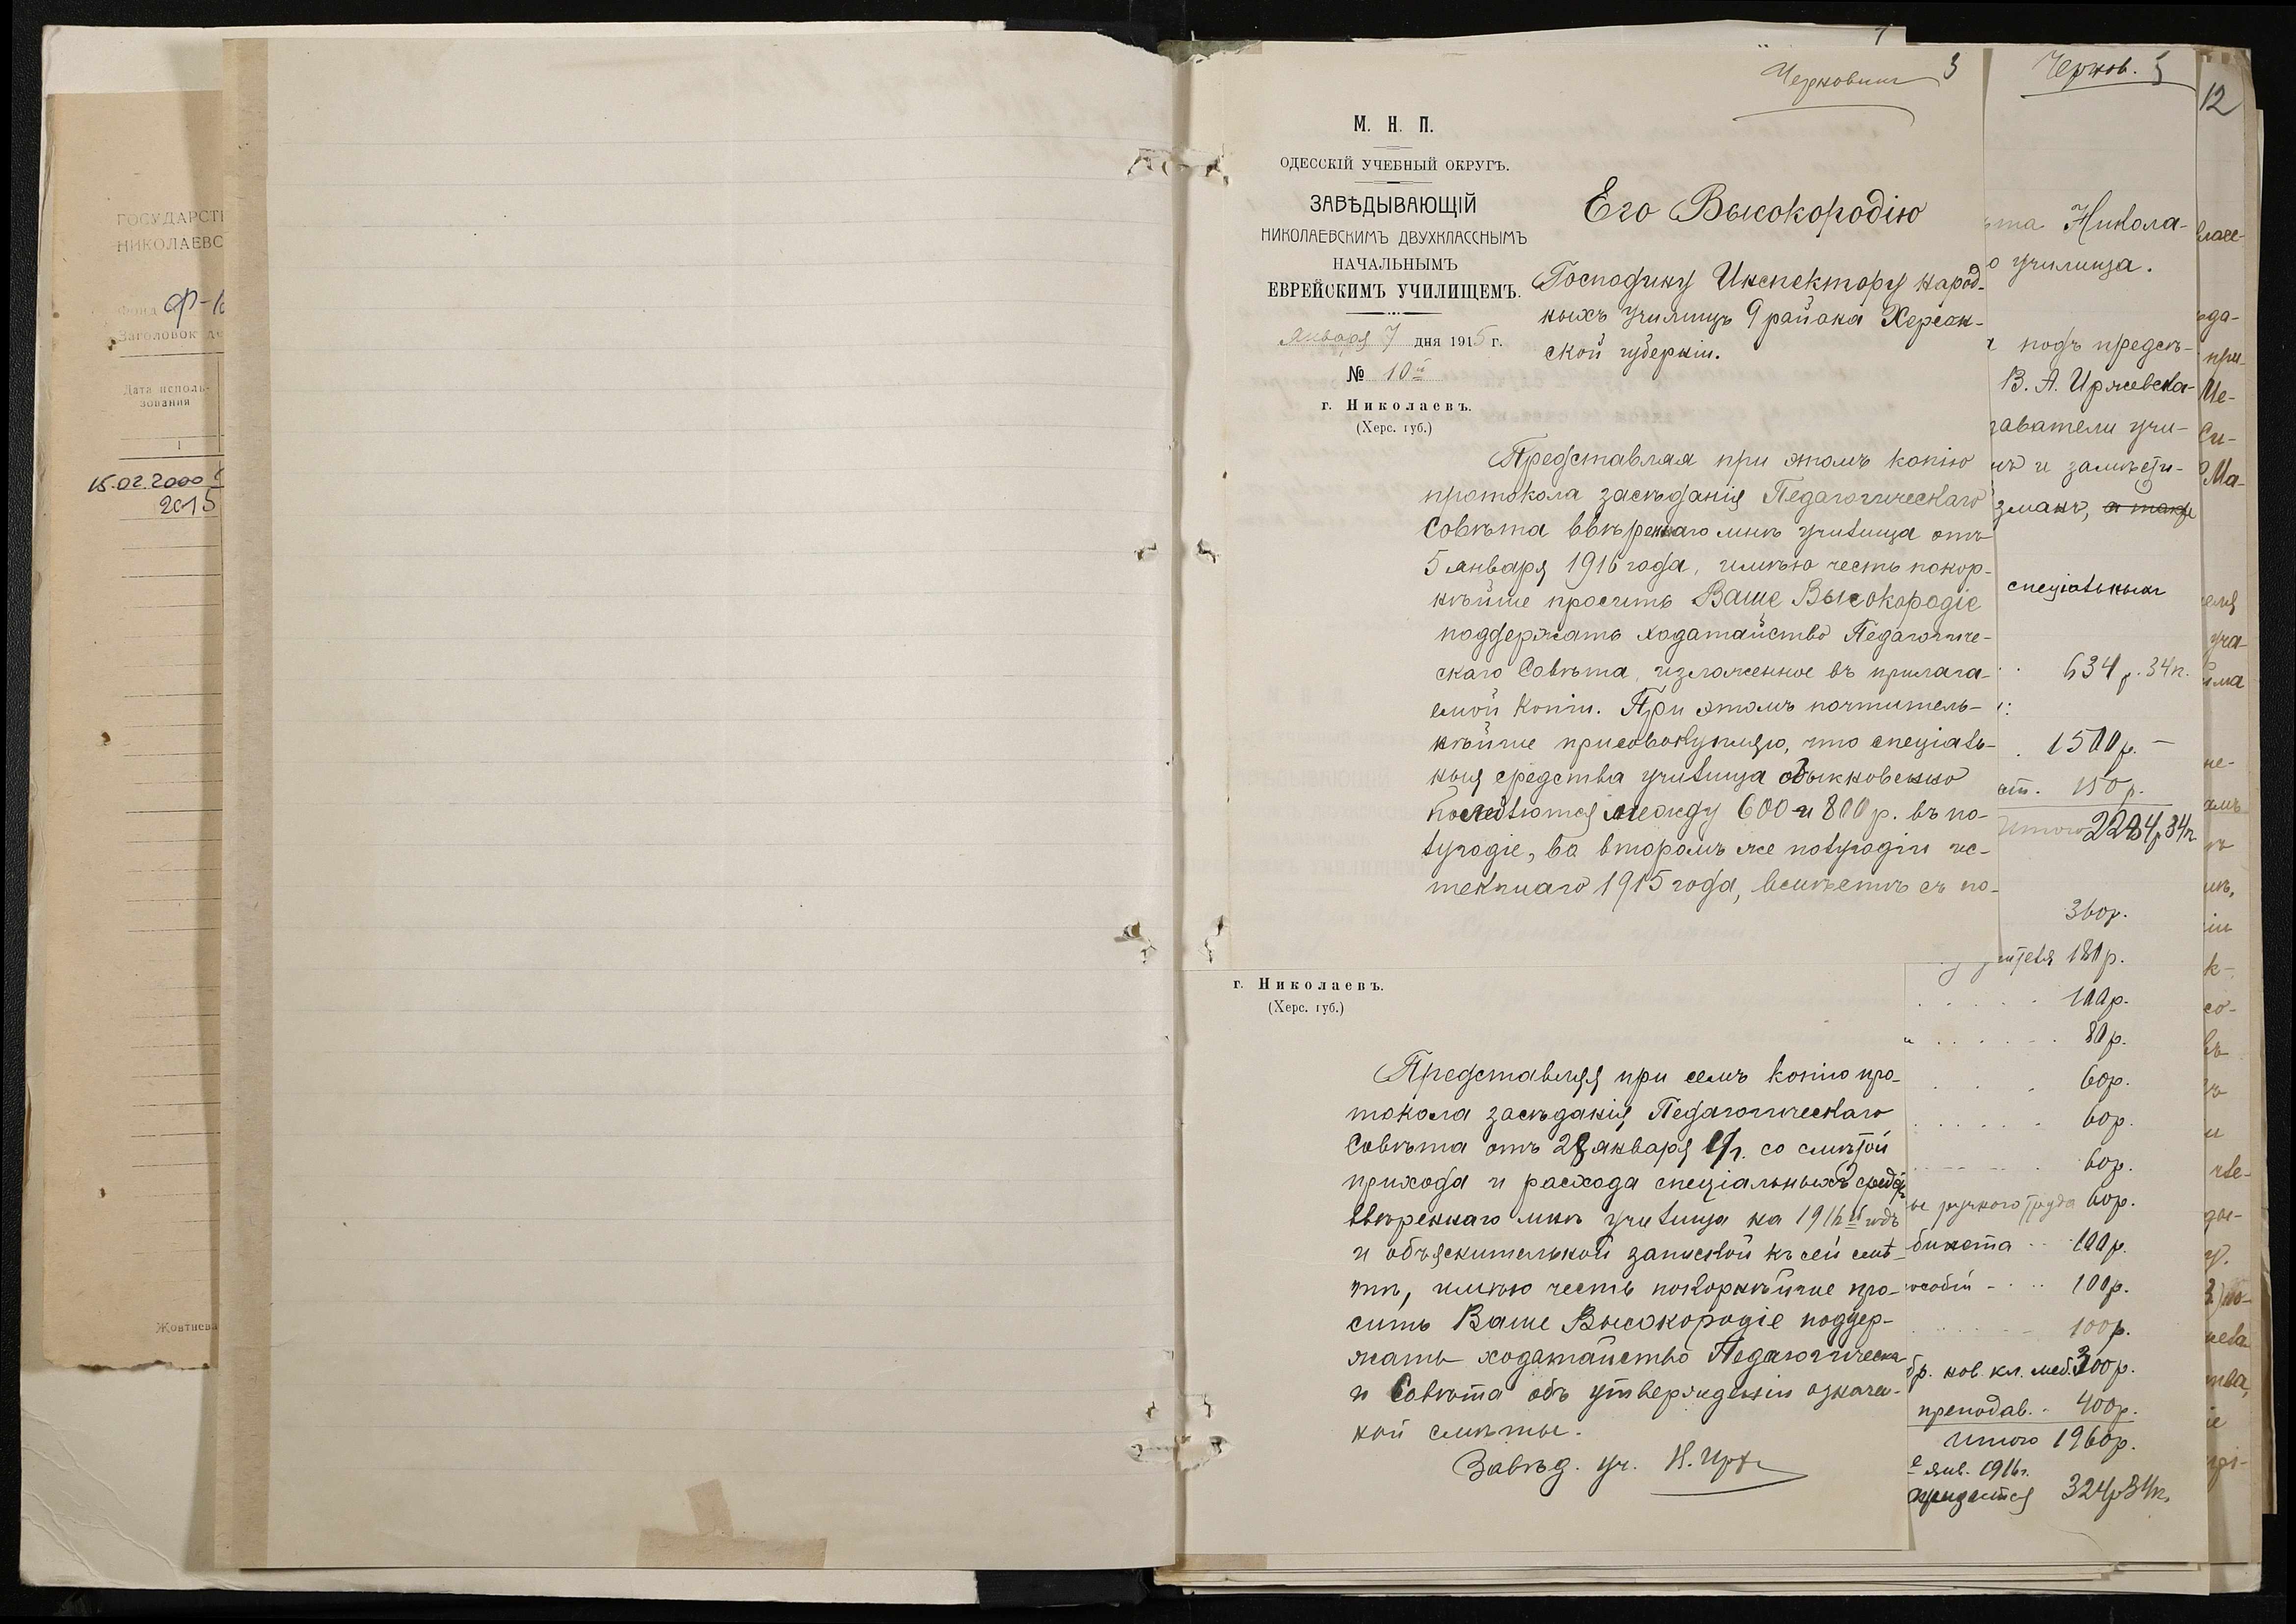 ГОСУДАРСТ
НИКОЛАЕВС
Фонд Ф-1
Заголовок де
Дата исполь-
зования
1
15.02.2000
2015
Жовтнева
Черновик 3
М. Н. П.
ОДЕССКІЙ УЧЕБНЫЙ ОКРУГЪ.
ЗАВѢДЫВАЮЩІЙ
НИКОЛАЕВСКИМЪ ДВУХКЛАССНЫМЪ
НАЧАЛЬНЫМЪ
ЕВРЕЙСКИМЪ УЧИЛИЩЕМЪ.
Января 7 дня 1915 г.
№ 10
г. Николаевъ.
(Херс. губ.)
Его Высокородію
Господину Инспектору народ-
ныхъ училищъ 9 района Херсон-
ской губерніи.
Представляя при этомъ копію
протокола засѣданія Педагогическаго
Совѣта ввѣреннаго мнѣ училища отъ
5 января 1916 года, имѣю честь покор-
нѣйше просить Ваше Высокородіе
поддержать ходатайство Педагогиче-
скаго Совѣта, изложенное въ прилага-
емой копіи. При этомъ почтитель-
нѣйше присовокупляю, что спеціаль-
ныя средства училища обыкновенно
колеблются между 600 и 800 р. въ по-
лугодіе, во второмъ же полугодіи ис-
текшаго 1915 года, вмѣстѣ съ по-
г. Николаевъ.
(Херс. губ.)
Представляя при семъ копію про-
токола засѣданія Педагогическаго
Совѣта отъ 28 января с/г. со смѣтой
прихода и расхода спеціальныхъ средствъ
ввѣреннаго мнѣ училища на 1916 годъ
и объяснительной запиской къ сей смѣ-
тѣ, имѣю честь покорнѣйше про-
сить Ваше Высокородіе поддер-
жать ходатайство Педагогическа
и Совѣта объ утвержденіи означен-
ной смѣты.
Завѣд. уч.
Чернов. 5
ѣта Никола-
о училища.
подъ предсѣ-
В. А. Иржевска-
даватели учи-
и замѣсти-
зманъ, а также
спеціальныхъ
634 р. 34 к.
1500 р. —
150 р.
Итого 2284 р 34 к
360 р.
ителя 180 р.
100 р.
80 р.
60 р.
60 р.
60 р.
ручного труда 60 р.
бинета 100 р.
пособій 100 р.
100 р.
бр. нов. кл. меб. 300 р.
преподав. 400 р.
Итого 1960 р.
янв. 1916 г.
324 р 34 к.
12
при-
Ме-
Си-
Ма-
уча-
к-
со-